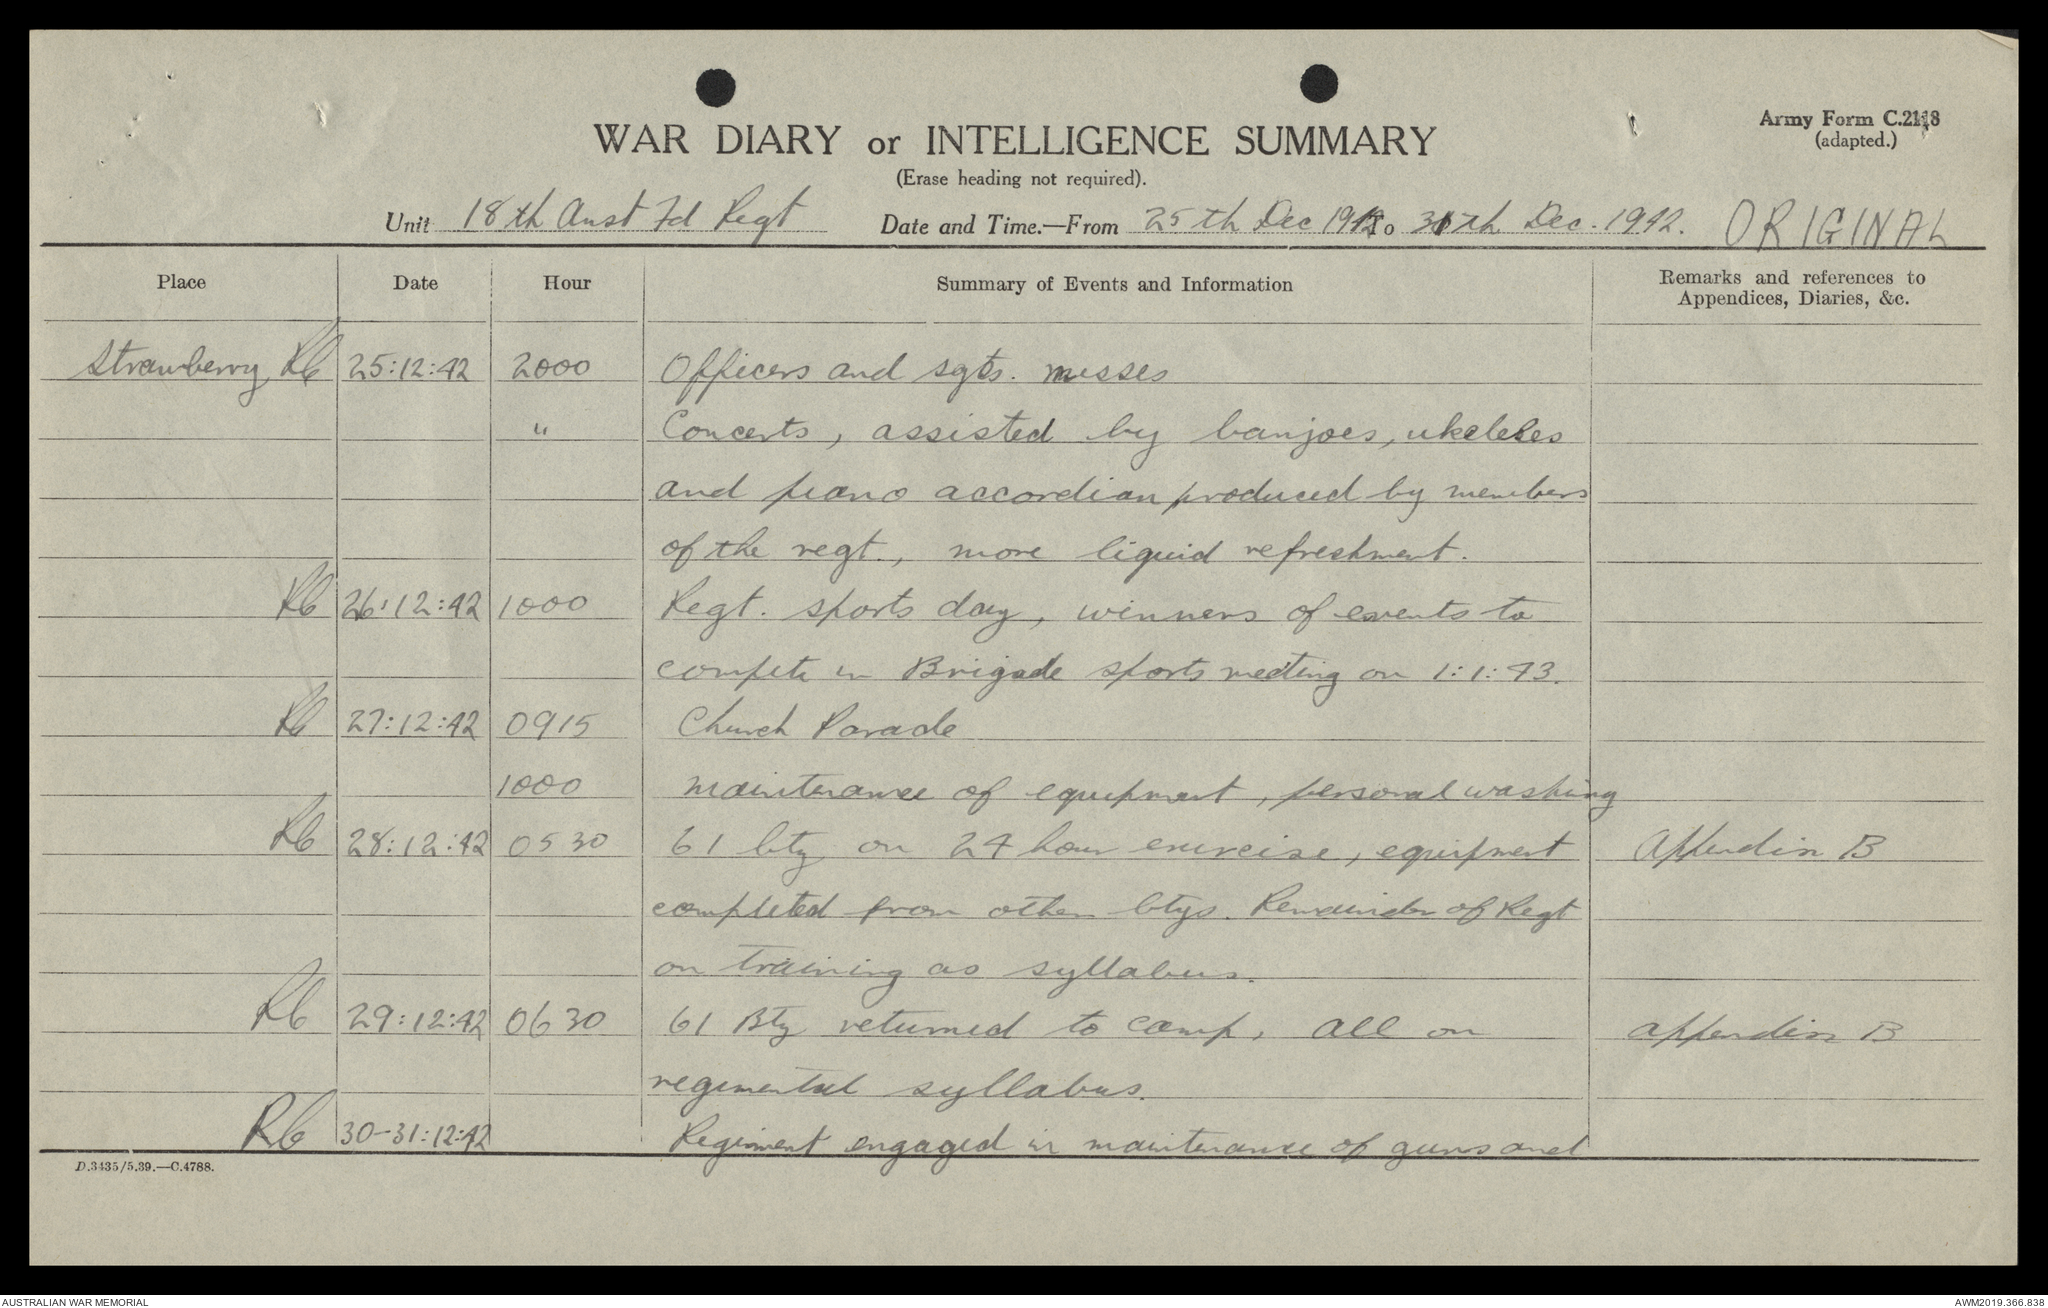 Army Form C.2118
(adapted.)
WAR DIARY or INTELLIGENCE SUMMARY
(Erase heading not required).
Unit 18th Aust Fd Regt Date and Time.—From 25th Dec 1942 To 31th Dec. 1942. ORIGINAL
Place Date Hour Summary of Events and Information Remarks and references to
Appendices, Diaries, &c.
Strawberry 25:12:42 2000 Officers and sgts. messes
" Concerts, assisted by banjoes, ukeleles
and piano accordian produced by members
of the regt., more liquid refreshment.
26:12:42 1000 Regt. sports day, winners of events to
compete in Brigade sports meeting on 1:1:43.
27:12:42 0915 Church Parade
1000 maintenance of equipment, personal washing
28:12:42 0530 61 bty on 24 hour exercise, equipment Appendix B
completed from other btys. Remainder of Regt
on training as syllabus.
29:12:42 0630 61 Bty returned to camp, all on appendix B
regimental syllabus.
30-31:12:42 Regiment engaged in maintenance of guns and
D.3435/5.39.—C.4788.
AUSTRALIAN WAR MEMORIAL AWM2019.366.838